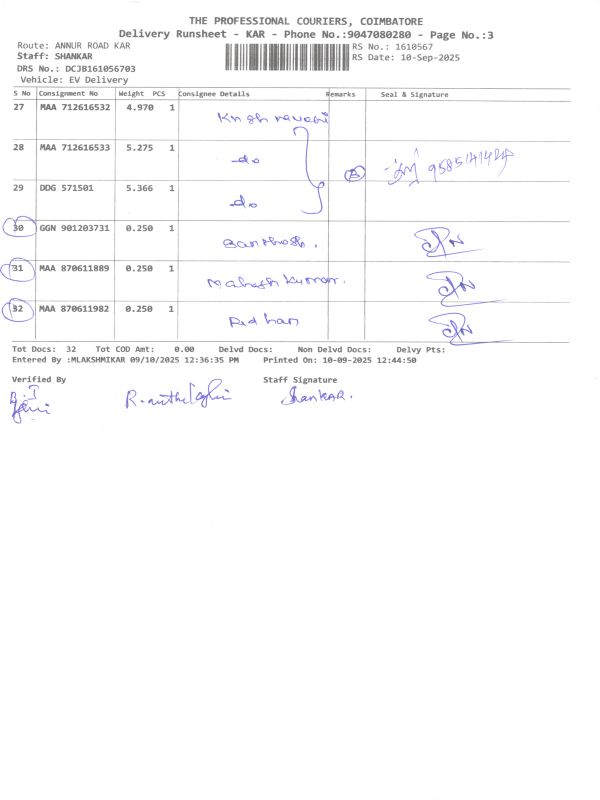 THE PROFESSIONAL COURIERS, COIMBATORE
Delivery Runsheet - KAR - Phone No.:9047080280 - Page No.:3
Route: ANNUR ROAD KAR
RS No.: 1610567
Staff: SHANKAR
RS Date: 10-Sep-2025
DRS No.: DCJB161056703
Vehicle: EV Delivery
S No Consignment No Weight PCS Consignee Details Remarks Seal & Signature
27 MAA 712616532 4.970 1
28 MAA 712616533 5.275 1 -do
29 DDG 571501 5.366 1 -do
30 GGN 901203731 0.250 1 Santhosh.
31 MAA 870611889 0.250 1 Mahesh Kumar.
32 MAA 870611982 0.250 1
Tot Docs: 32 Tot COD Amt: 0.00 Delvd Docs: Non Delvd Docs: Delvy Pts:
Entered By :MLAKSHMIKAR 09/10/2025 12:36:35 PM Printed On: 10-09-2025 12:44:50
Verified By Staff Signature
ShanKAR.